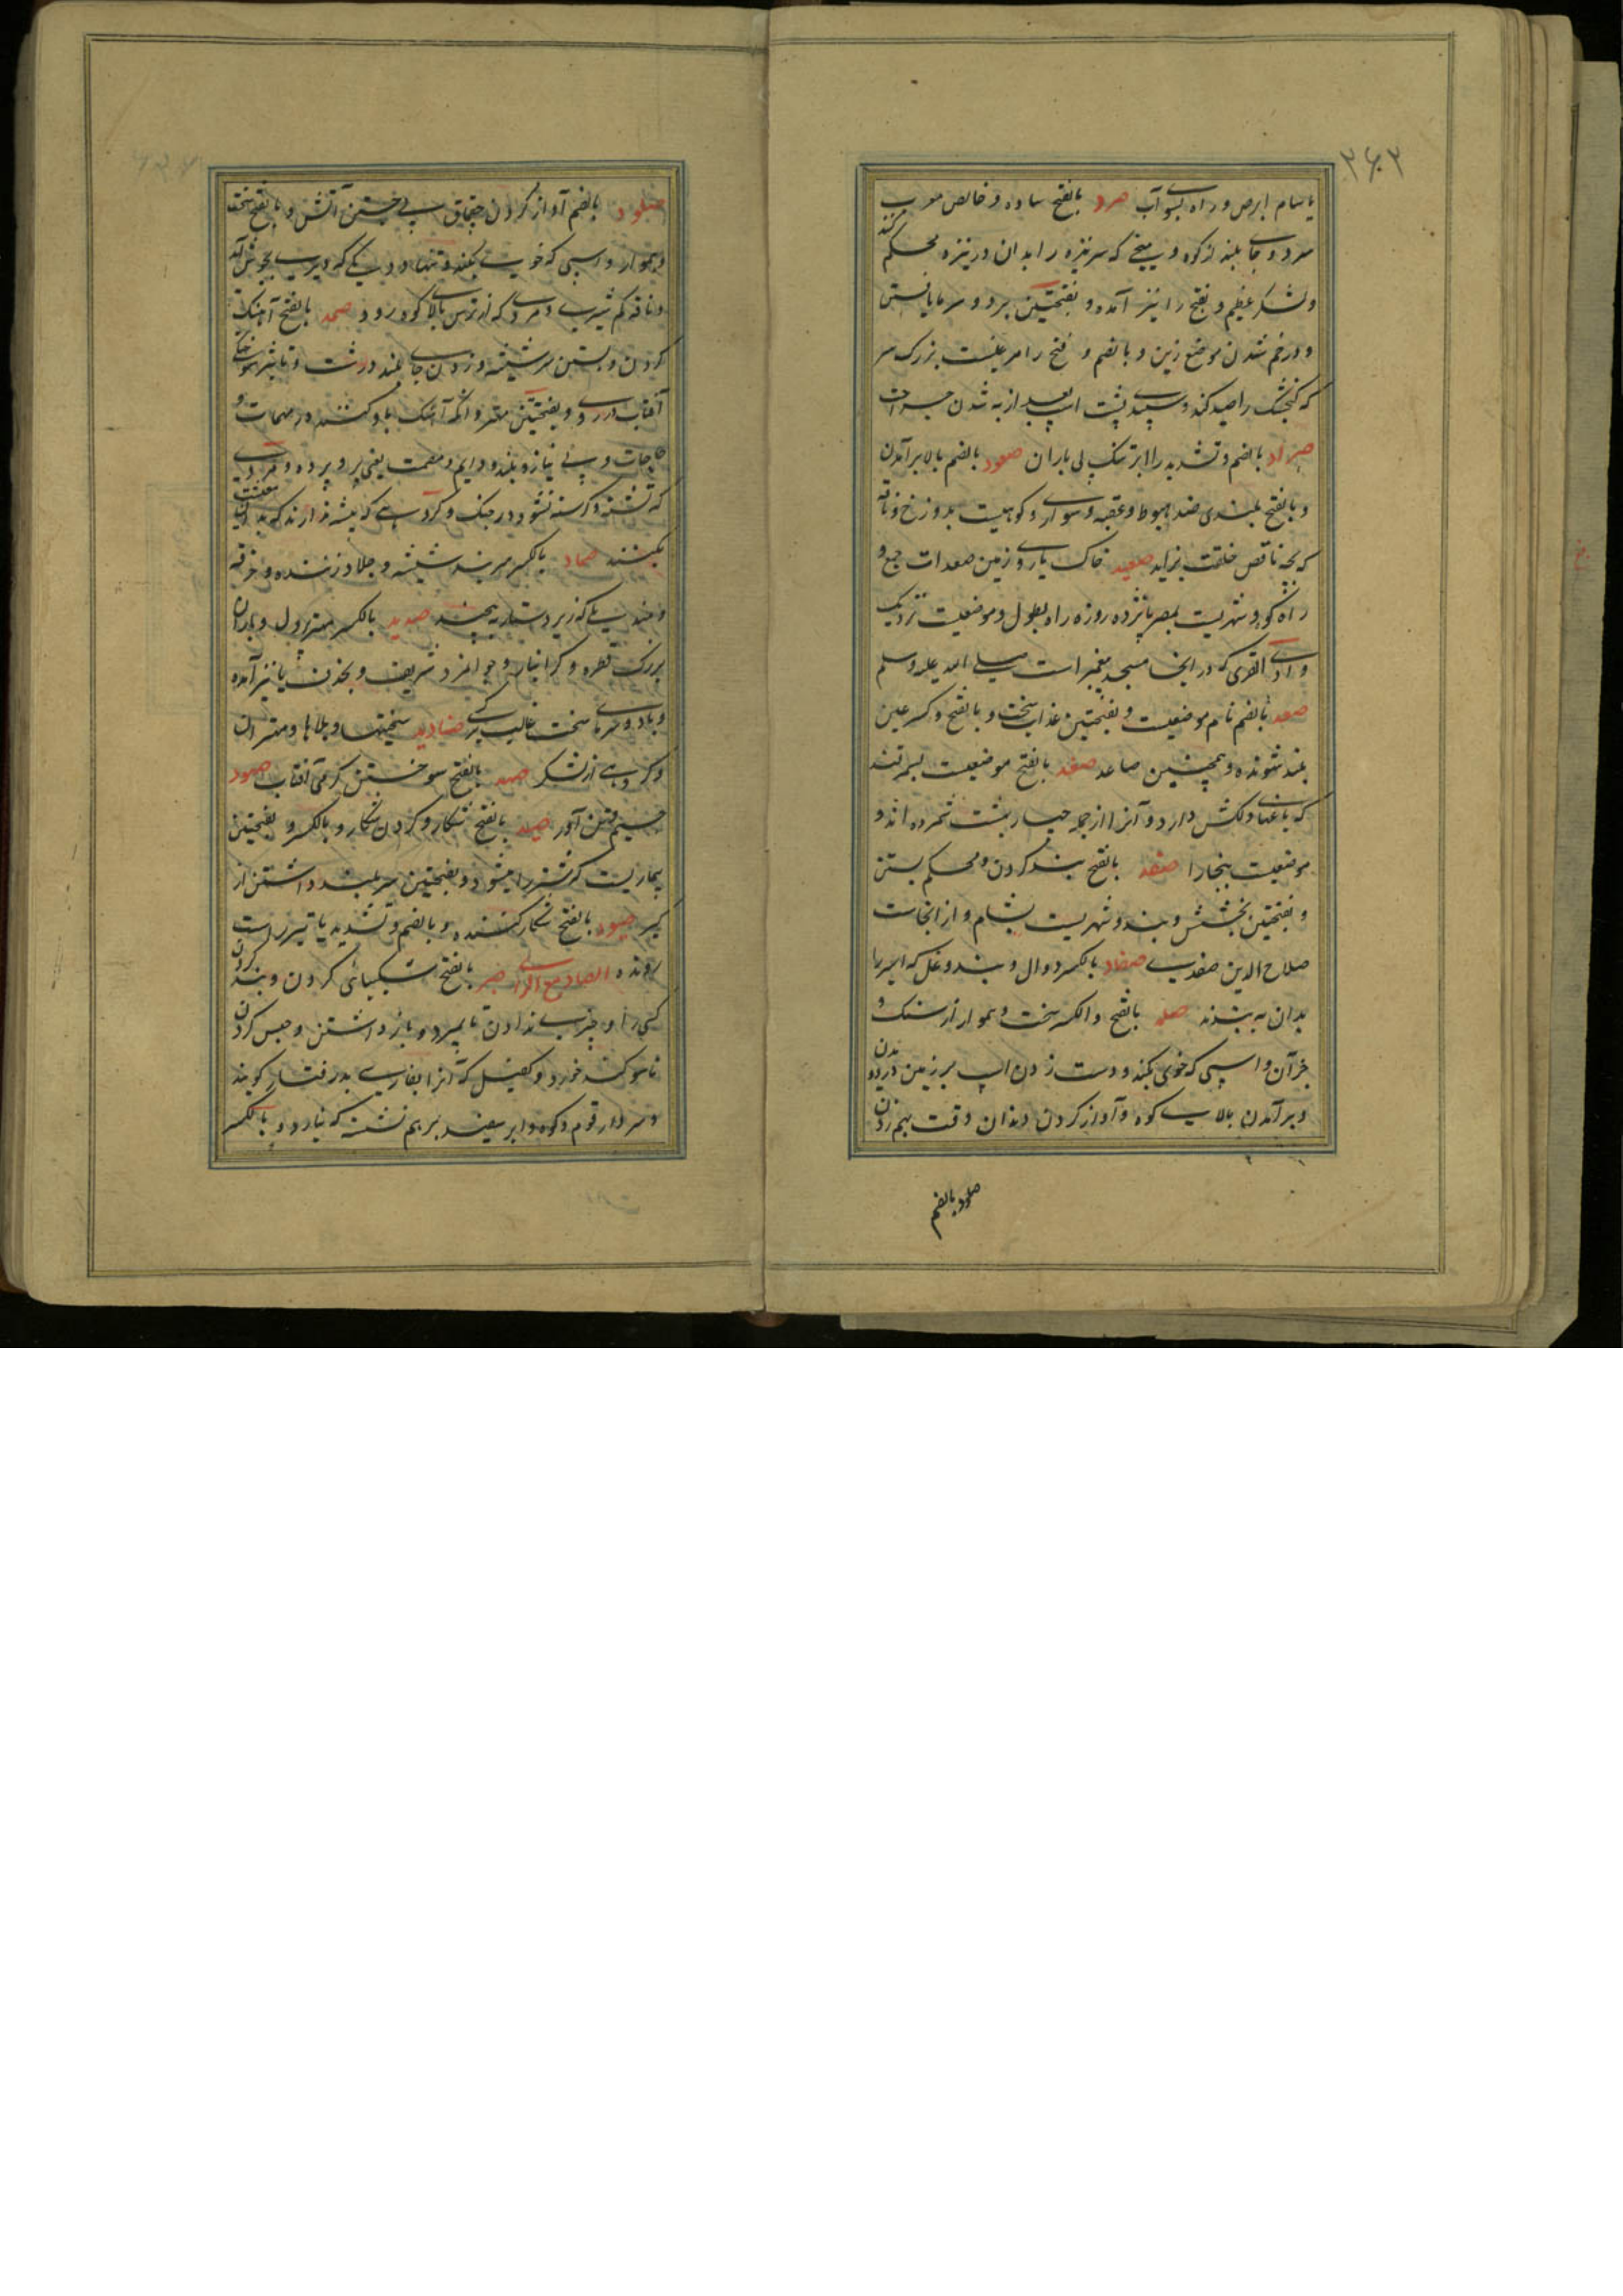 ۳۶۲
یا سام ابرص و راه بسوی آب صرد بالفتح ساده و خالص معرب
سرد و جای بلند از کوه و میخی که سر نیزه را بدان در نیزه محکم کنند
و لشکر عظیم و بفتح را نیز آمده و بفتحتین برد و سرما یافتن
و درخم شدن موضع زین و بالضم و فتح را مرغیست بزرک سر
که کنجشک را صید کند و سپیدی پشت اسپ بعد از به شدن جراحت
صراد بالضم و تشدید را ابر تنک بی باران صعود بالضم بالا برآمدن
و بالفتح بلندی ضد هبوط و عقبه دشوار و کوهیست بدوزخ و ناقه
که بچه ناقص خلقت بزاید صعید خاک یا روی زمین صعدات جمع و
راه کور و شهریست بمصر پانزده روزه راه بطول و موضعیست نزدیک
وادی القری که در انجا مسجد پیغمبر است صلی الله علیه وسلم
صعد بالضم نام موضعیست و بفتحتین عذاب سخت و بالفتح و کسر عین
بلند شونده و همچنین صاعد صغد بالفتح موضعیست بسمرقند
که باغهای دلکش دارد و آنرا از جمله چهار بهشت شمرده اند و
موضعیست ببخارا صفد بالفتح بند کردن و محکم بستن
و بفتحتین بخشش و بند و شهریست بشام و از انجاست
صلاح الدین صفدی صفاد بالکسر دوال و بند و غل که اسیر را
بدان به بندند صلد بالفتح والکسر سخت و هموار از سنک و
جز آن و اسپی که خوی نکند و دست زدن اسپ بر زمین در دویدن
و برآمدن بالای کوه و آواز کردن دندان وقت بهم زدن
صلود بالضم
صلود بالضم آواز کردن چقماق بی جستن آتش و بالفتح سخت
و هموار و اسپی که خوی نکند و تنها و دیکی که دیر بجوش آید
و ناقه کم شیر و مردی که از ترس بالای کوه رود صمد بالفتح آهنک
کردن و بستن سر شیشه و زدن و جای بلند درشت و تاثیر سوختکی
آفتاب در روی و بفتحتین مهتر و آنکه آهنک باو کنند در مهمات و
حاجات و بی نیاز و بلند و دایم و مصمت یعنی پر و مردی
که تشنه و کرسنه نشود در جنک و کروهی که پیشه ندارند که بدان معیشت
بکنند صماد بالکسر سر بند شیشه و جلاد زننده و خرقه
و مندیلی که زیر دستار پیچند صندید بالکسر مهتر و دل و باران
بزرک قطره و کرانبار و جوانمرد شریف و بحذف یا نیز آمده
و باد و سرمای سخت غالب صنادید سختیها و بلاها و مهتران
و کروهی از لشکر صهد بالفتح سوختن کرمی آفتاب صهود
جسیم صید بالفتح شکار و کردن شکار و بالکسر و بفتحتین
بیماریست که شتر را میشود و بفتحتین سر بلند داشتن از
کبر صیود بالفتح شکار کننده و بالضم و تشدید یا تیر راست
رونده الصاد مع الراء صبر بالفتح شکیبائی کردن و بند کردن
کسی را و چیزی ندادن تا بمیرد و باز داشتن و حبس کردن
تا سوکند خورد و کفیل که آنرا بفارسی پذرفتار کویند
و سردار قوم و کوه و ابر سفید بر هم نشسته که نبارد و بالکسر